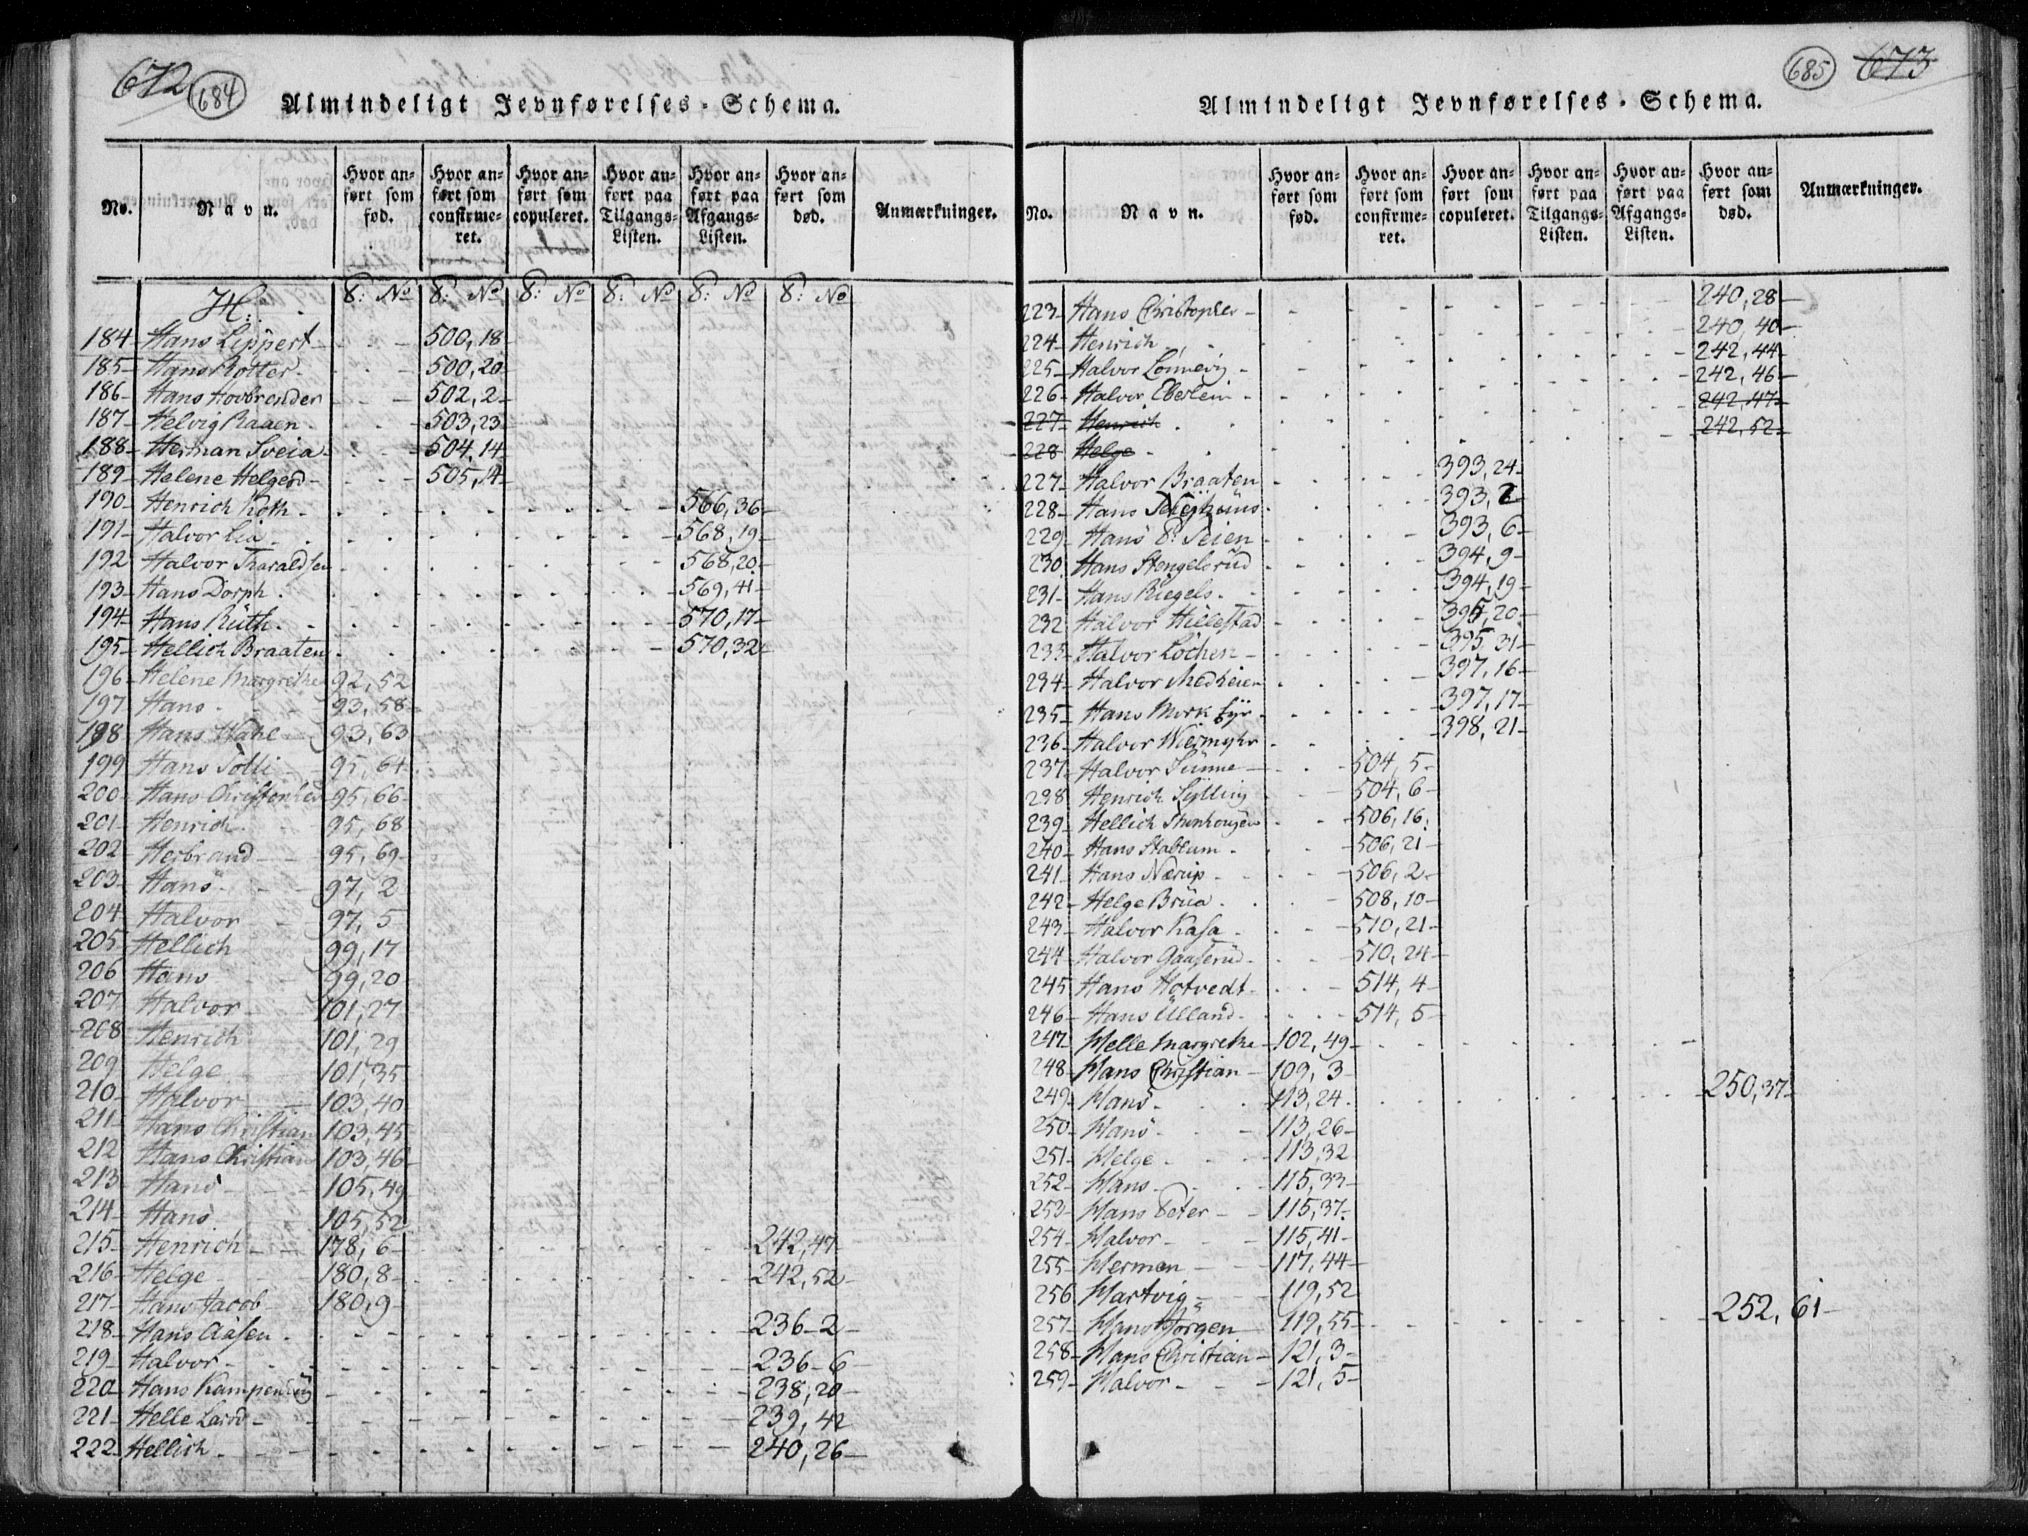 672
684
Almindeligt Jevnførelses-Schema.
No.
Navn.
Hvor anført som fød.
Hvor anført som confirmeret.
Hvor anført som copuleret.
Hvor anført paa Tilgangs-Listen.
Hvor anført paa Afgangs-Listen.
Hvor anført som død.
Anmærkninger.
H: P: No P: No P: No P: No P: No P: No
184 Hans Lippert 500, 18
185 Hans Rotter 500, 20
186 Hans Hovbrender 502, 2
187 Helvig Raaen 503, 23
188 Herman Sveia 504, 14
189 Helene Helgerd 505, 4
190 Henrich Koth 566, 36
191 Halvor Lia 568, 19
192 Halvor Tharaldsen 568, 20
193 Hans Dorph 569, 41
194 Hans Ruth 570, 17
195 Hellich Braaten 570, 32
196 Helene Margrethe 92, 52
197 Hans 93, 58
198 Hans Wahl 93, 63
199 Hans Solli 95, 64
200 Hans Christopher 95, 66
201 Henrich 95, 68
202 Herbrand 95, 69
203 Hans 97, 2
204 Halvor 97, 5
205 Hellich 99, 17
206 Hans 99, 20
207 Halvor 101, 27
208 Henrich 101, 29
209 Helge 101, 35
210 Halvor 103, 40
211 Hans Christian 103, 45
212 Hans Christian 103, 46
213 Hans 105, 49
214 Hans 105, 52
215 Henrich 178, 6 242, 47
216 Helge 180, 8 242, 52
217 Hans Jacob 180, 9
218 Hans Aasen 236-2
219 Halvor 236-6
220 Hans Kampenhaug 238, 20
221 Helle Lard 239, 42
222 Hellich 240, 26
685
673
Almindeligt Jevnførelses-Schema.
No.
Navn.
Hvor anført som fød.
Hvor anført som confirmeret.
Hvor anført som copuleret.
Hvor anført paa Tilgangs-Listen.
Hvor anført paa Afgangs-Listen.
Hvor anført som død.
Anmærkninger.
223 Hans Christopher 240, 28
224 Henrich 240, 40
225 Halvor Lønnevig 242, 44
226 Halvor Eberlein 242, 46
227 Henrich 242, 47
228 Helge 242, 52
227 Halvor Braaten 393, 24
228 Hans 393, 2
229 Hans P: Seien 393, 6
230 Hans Stengelsrud 394, 9
231 Hans Riegels 394, 19
232 Halvor Hillestad 395, 20
233 Halvor Løchen 395, 31
234 Halvor Medheien 397, 16
235 Hans Mork 397, 17
236 Halvor Wiermyhr 398, 21
237 Halvor Sunne 504, 5
238 Henrich Sylling 504, 6
239 Hellich Steenhougen 506, 16
240 Hans Stablum 506, 21
241 Hans Nærup 506, 2
242 Helge Brua 508, 10
243 Halvor Kasa 510, 21
244 Halvor Gaaserud 510, 24
245 Hans Hotvedt 514, 4
246 Hans Ulland 514, 5
247 Helle Margrethe 102, 49
248 Hans Christian 109, 3
249 Hans 113, 24 250, 37
250 Hans 113, 26
251 Helge 113, 32
252 Hans 115, 33
253 Hans Peter 115, 37
254 Halvor 115, 41
255 Herman 117, 44
256 Hartvig 119, 52
257 Hans Jørgen 119, 55 252, 61
258 Hans Christian 121, 3
259 Halvor 121, 5